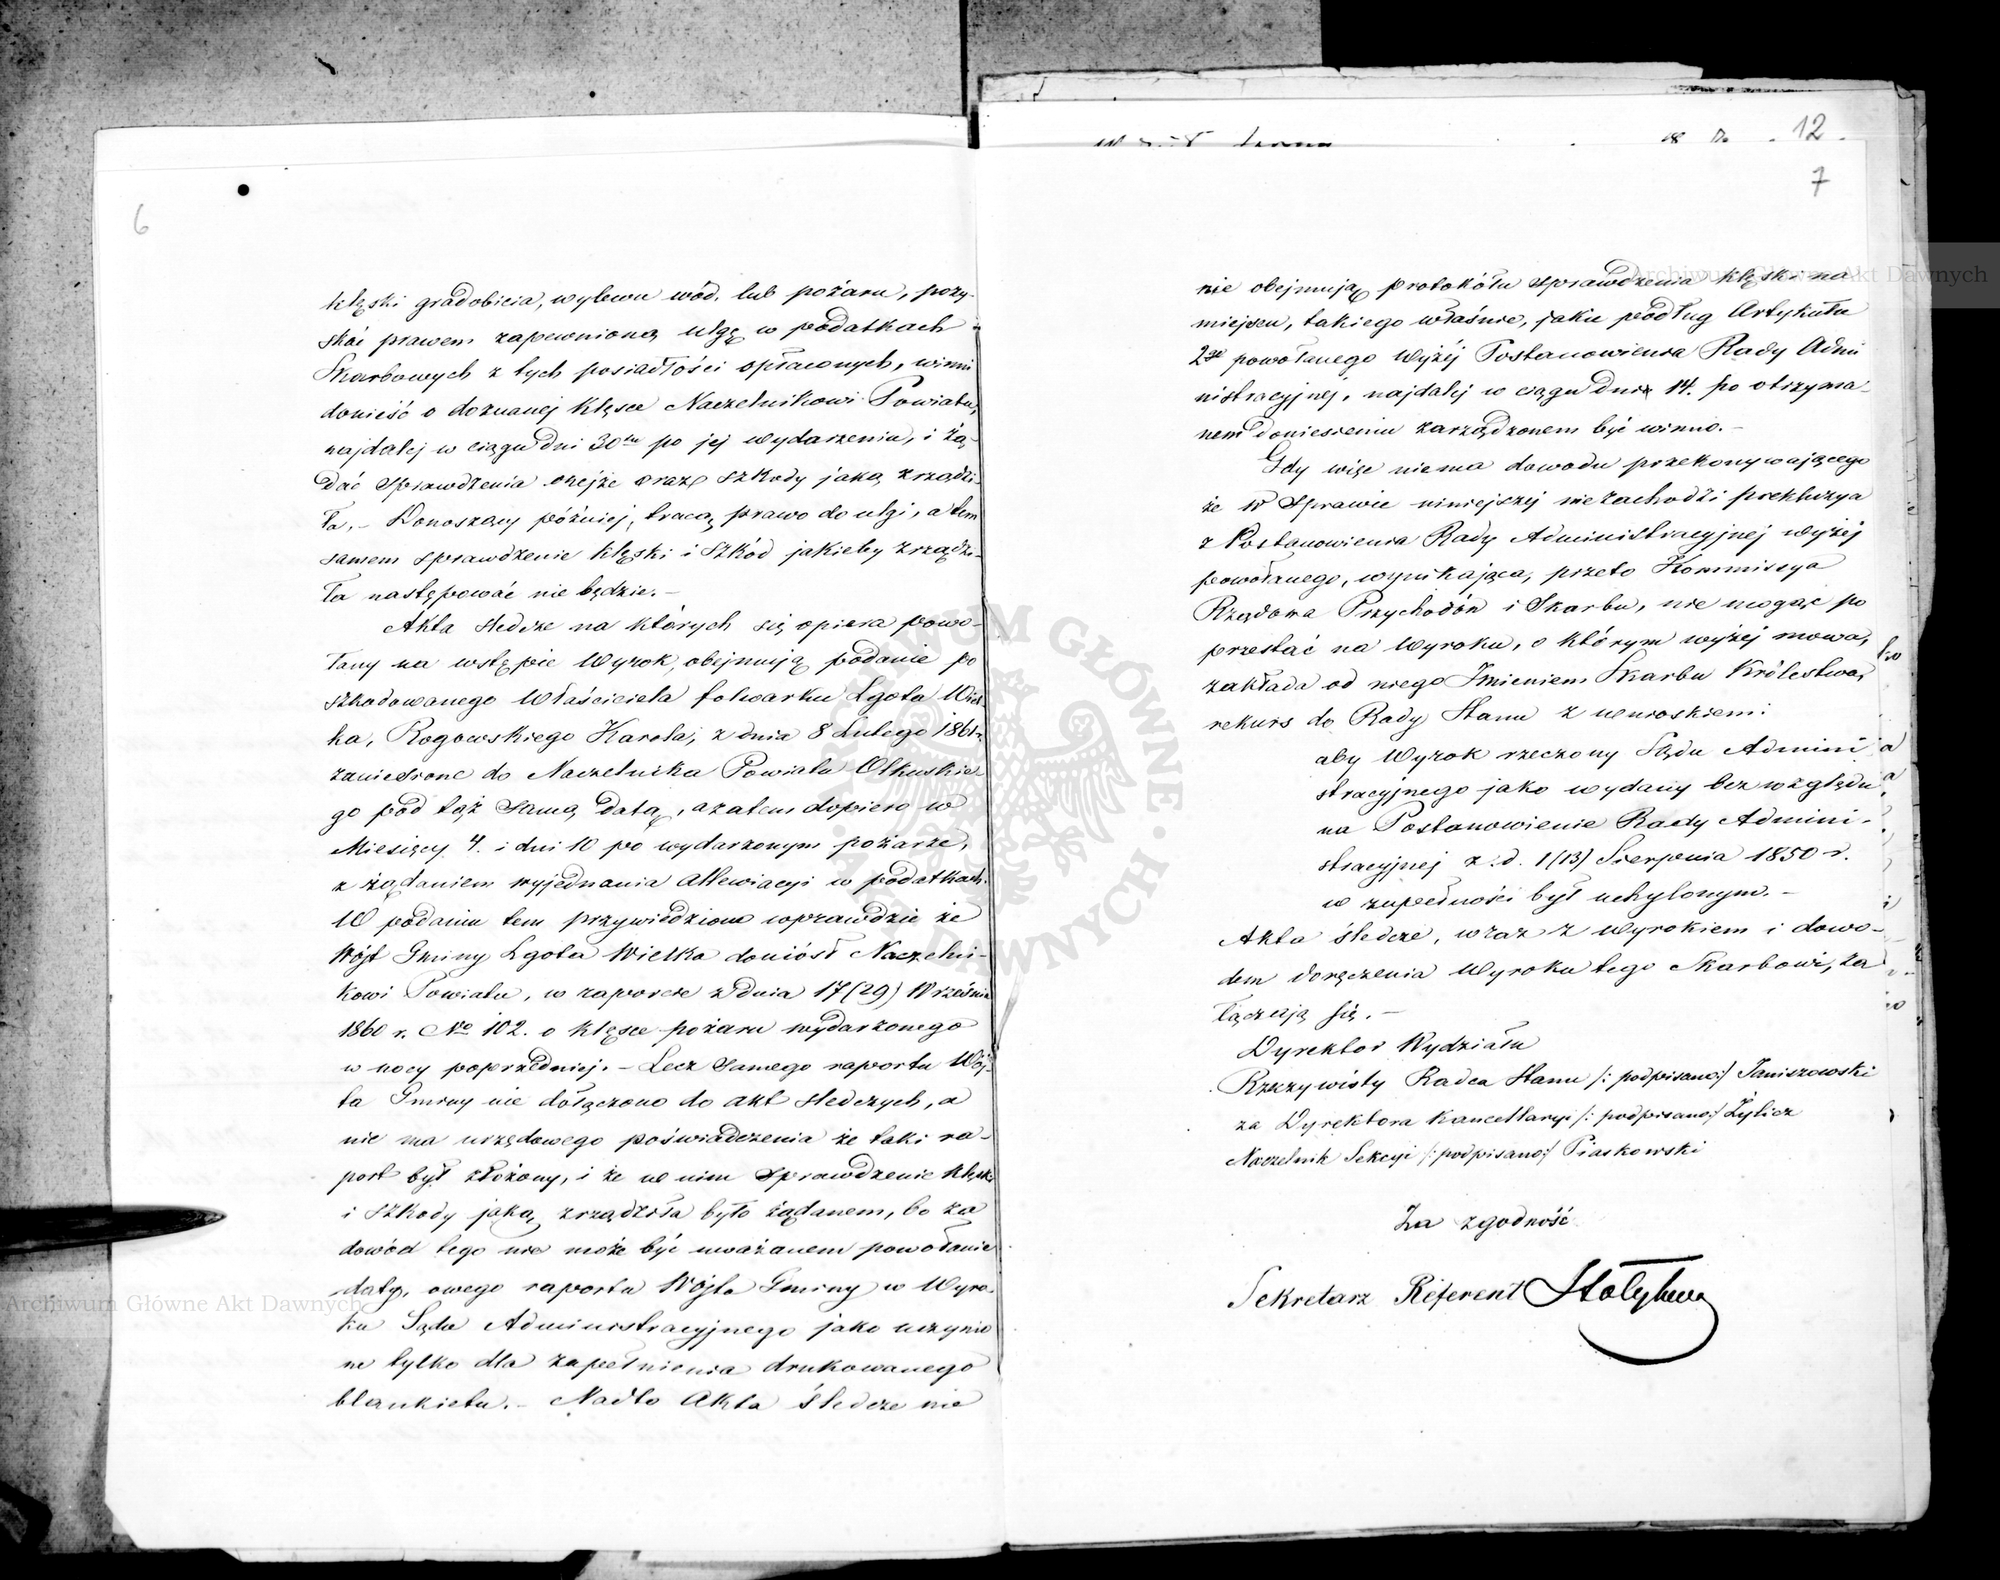 6
klęski gradobicia, wylewu wód, lub pożaru, pozy-
skać prawem zapewnioną ulgę w podatkach
Skarbowych z tych posiadłości opłaconych, winni
donieść o doznanej klęsce Naczelnikowi Powiatu,
najdalej w ciągu dni 30tu po jej wydarzeniu, i żą-
dać sprawdzenia onejże oraz szkody jaką zrządzi-
ła. – Donoszący później, tracą prawo do ulgi, a tem
samem sprawdzenie klęski i szkód jakieby zrządzi-
ła następować nie będzie. –
Akta śledcze na których się opiera powo-
łany na wstępie Wyrok, obejmują podanie po
szkodowanego Właściciela folwarku Lgota Wiel-
ka, Rogowskiego Karola, z dnia 8 Lutego 1861 r.
zaniesione do Naczelnika Powiatu Olkuskie-
go pod tąż samą datą, a zatem dopiero w
Miesięcy 4. i dni 10 po wydarzonym pożarze,
z żądaniem wyjednania allewiacyi w podatkach.
W podaniu tem przywiedziono wprawdzie że
Wójt Gminy Lgota Wielka doniósł Naczelni-
kowi Powiatu, w raporcie z dnia 17 (29) Września
1860 r. No 102. o klęsce pożaru wydarzonego
w nocy poprzedniej. – Lecz samego raportu Wój-
ta Gminy nie dołączono do akt śledczych, a
nie ma urzędowego poświadczenia że taki ra-
port był złożony, i że w nim sprawdzenie klęski
i szkody jaką zrządziła było żądanem, bo za
dowód tego nie może być uważanem powołanie
daty, owego raportu Wójta Gminy w Wyro-
ku Sądu Administracyjnego jako uczynio
ne tylko dla zapełnienia drukowanego
blankietu. – Nadto Akta śledcze nie
12
7
nie obejmują protokółu sprawdzenia klęski na
miejscu, takiego właśnie, jakie podług Artykułu
2go powołanego wyżej Postanowienia Rady Admi
nistracyjnej, najdalej w ciągu dni 14. po otrzyma-
nem doniesieniu zarządzonem być winno. –
Gdy więc niema dowodu przekonywającego
że w sprawie niniejszej nie zachodzi prekluzya
z Postanowienia Rady Administracyjnej wyżej
powołanego, wynikająca, przeto Kommissya
Rządowa Przychodów i Skarbu, nie mogąc po
przestać na Wyroku, o którym wyżej mowa,
zakłada od niego Imieniem Skarbu Królestwa,
rekurs do Rady Stanu z wnioskiem:
aby Wyrok rzeczony Sądu Admini
stracyjnego jako wydany bez względu
na Postanowienie Rady Admini-
stracyjnej z. d. 1 (13) Sierpnia 1850 r.
w zupełności był uchylonym. –
Akta śledcze, wraz z wyrokiem i dowo-
dem doręczenia Wyroku tego Skarbowi, za
łączają się. –
Dyrektor Wydziału
Rzeczywisty Radca Stanu /: podpisano:/ Janiszowski
za Dyrektora Kancellaryi /: podpisano:/ Żylicz
Naczelnik Sekcyi /: podpisano:/ Piaskowski
Za zgodność
Sekretarz Referent
ARCHIWUM GŁÓWNE AKT DAWNYCH
Archiwum Główne Akt Dawnych
Archiwum Główne Akt Dawnych